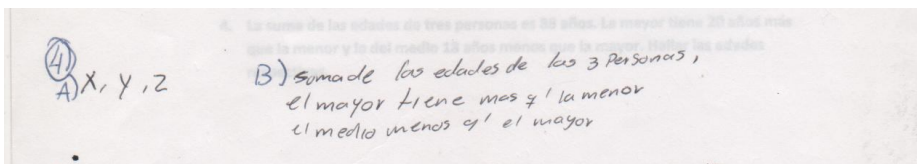 4. La suma de las edades de tres personas es 88 años. La mayor tiene 20 años más
que la menor y la del medio 18 años menos que la mayor. Hallar las edades
④
A) X, Y, Z
B) somade las edades de las 3 Personas,
el mayor tiene mas q' la menor
el medio menos q' el mayor